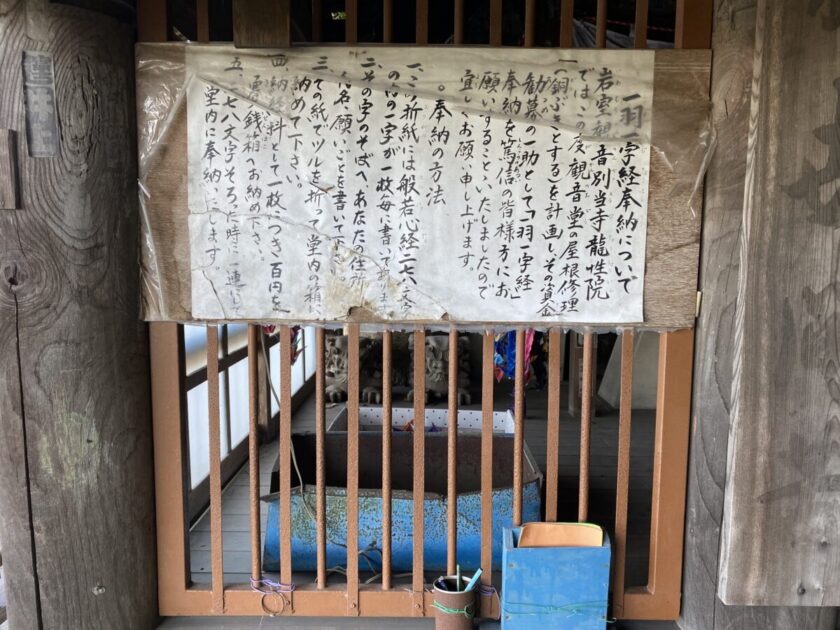 一羽一字経奉納について
岩室観音別当寺龍性院
ではこの度観音堂の屋根修理
(銅ぶきとする)を計画しその資金
勧募の一助として「一羽一字経」
奉納を篤信の皆様方にお
願いすることゝいたしましたので
宜しくお願い申し上げます。
。奉納の方法
一、この折紙には般若心経二七八文字
の内の一字が一枚毎に書いて有ります
二、その字のそばへあなたの住所
氏名、願いごとを書いて下さい。
三、その紙でツルを折って堂内の箱に
納めて下さい。
四、納経料として一枚につき百円を
賽銭箱へお納め下さい。
五、二七八文字そろった時に一連として
堂内に奉納いたします。